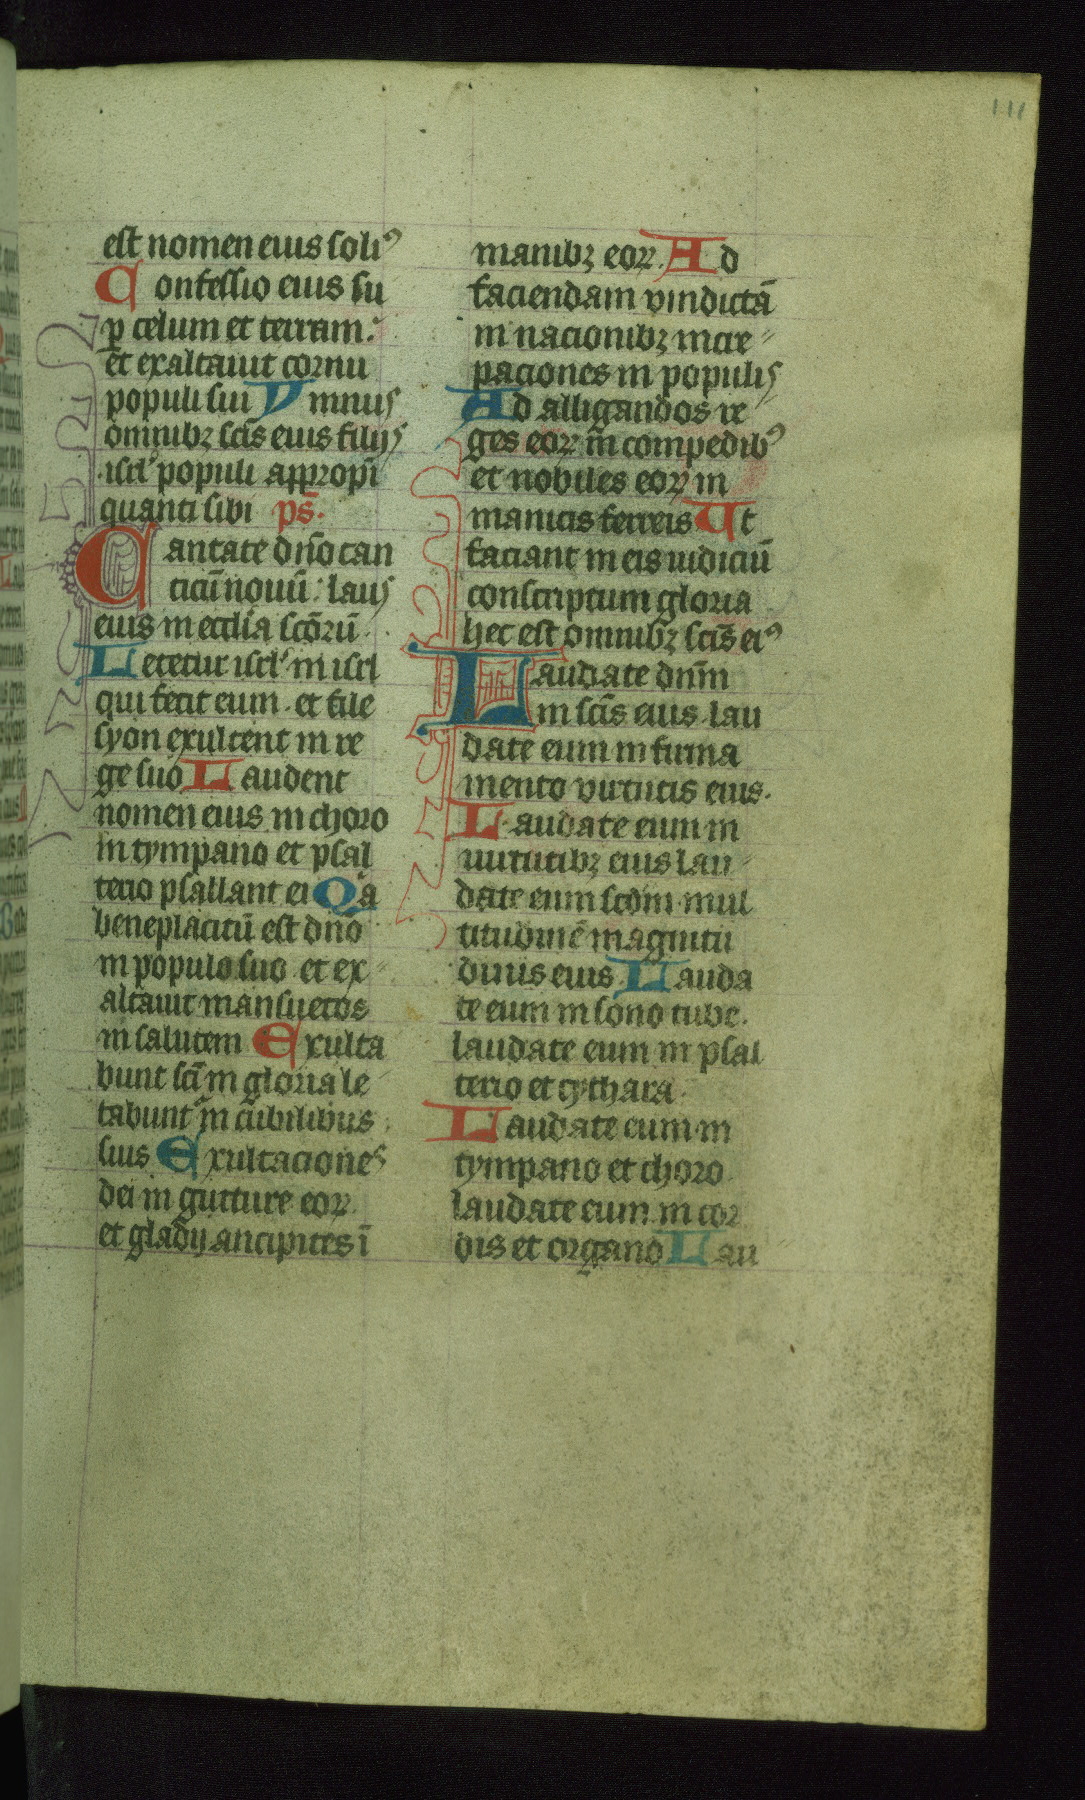 111
est nomen eius soliꝰ
Confessio eius su
ꝑ celum et terram.
et exaltauit cornu
populi sui Ymnus
omnibꝫ scis̄ eius filijs
isrl' populi appropī
quanti sibi ps̄.
Cantate dño can
ticū nouū: laus
eius in ecclīa scōrū.
Letetur isrl' in isrl
qui fecit eum. et filie
syon exultent in re
ge suo Laudent
nomen eius in choro
in tympano et psal
terio psallant ei Qa
beneplacitū est dño
in populo suo et ex
altauit mansuetos
in salutem Exulta
bunt scī in gloria le
tabunt' in cubilibus
suis Exultaciones
dei in gutture eoꝝ
et gladij ancipites ī
manibꝫ eoꝝ. Ad
faciendam vindictā
in nacionibꝫ incre
paciones in populis
Ad alligandos re
ges eoꝝ in compedibꝰ
et nobiles eoꝝ in
manicis ferreis Ut
faciant in eis iudiciū
conscriptum gloria
hec est omnibꝫ scis̄ eiꝰ
Laudate dnm̄
in scis̄ eius. lau
date eum in firma
mento virtutis eius.
Laudate eum in
uirtutibꝫ eius lau
date eum scdm̄ mul
titudinē magnitu
dinis eius Lauda
te eum in sono tube.
laudate eum in psal
terio et cythara.
Laudate eum in
tympano et choro
laudate eum in cor
dis et organo Lau